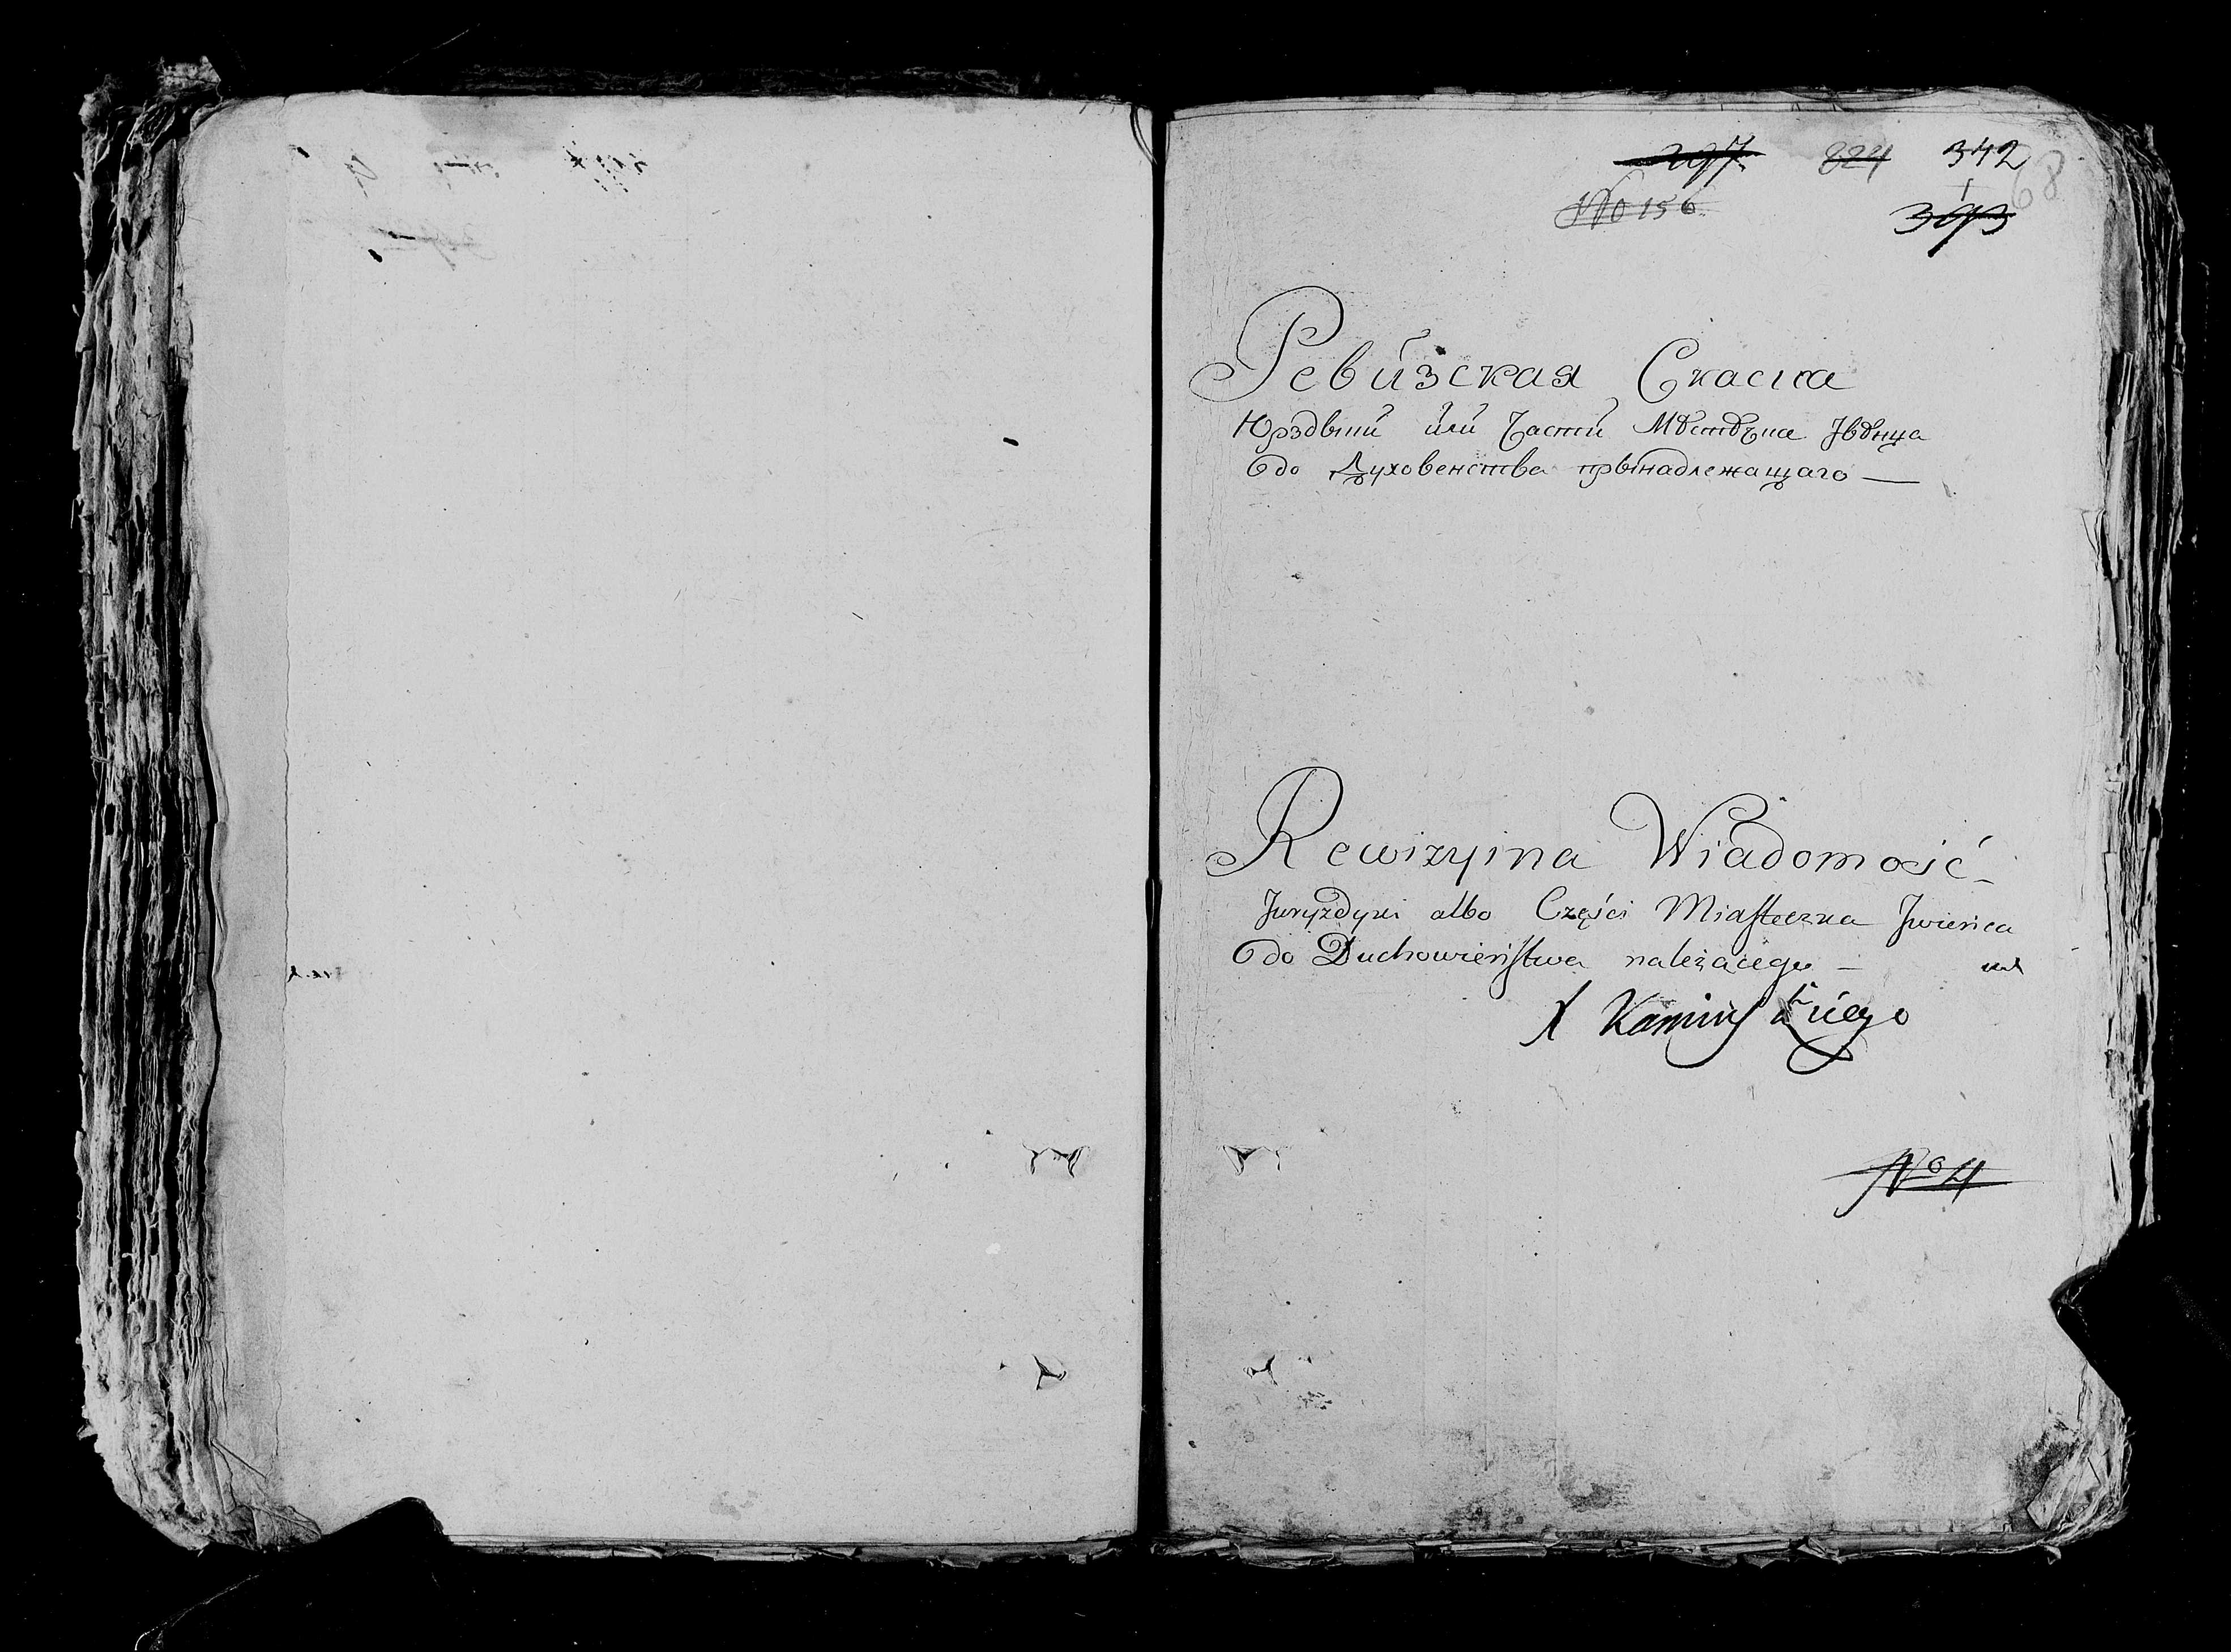 297 224 342
No 156 393
68
Ревизская Скаска
Юрздыки или Части Мѣстѣчка Iвѣнца
до Духовенства прынадлежащаго —
Rewizyina Wiadomość
Juryzdyki albo Części Miasteczka Jwieńca
do Duchowieństwa należącego —
X Kamińskiego
No 4